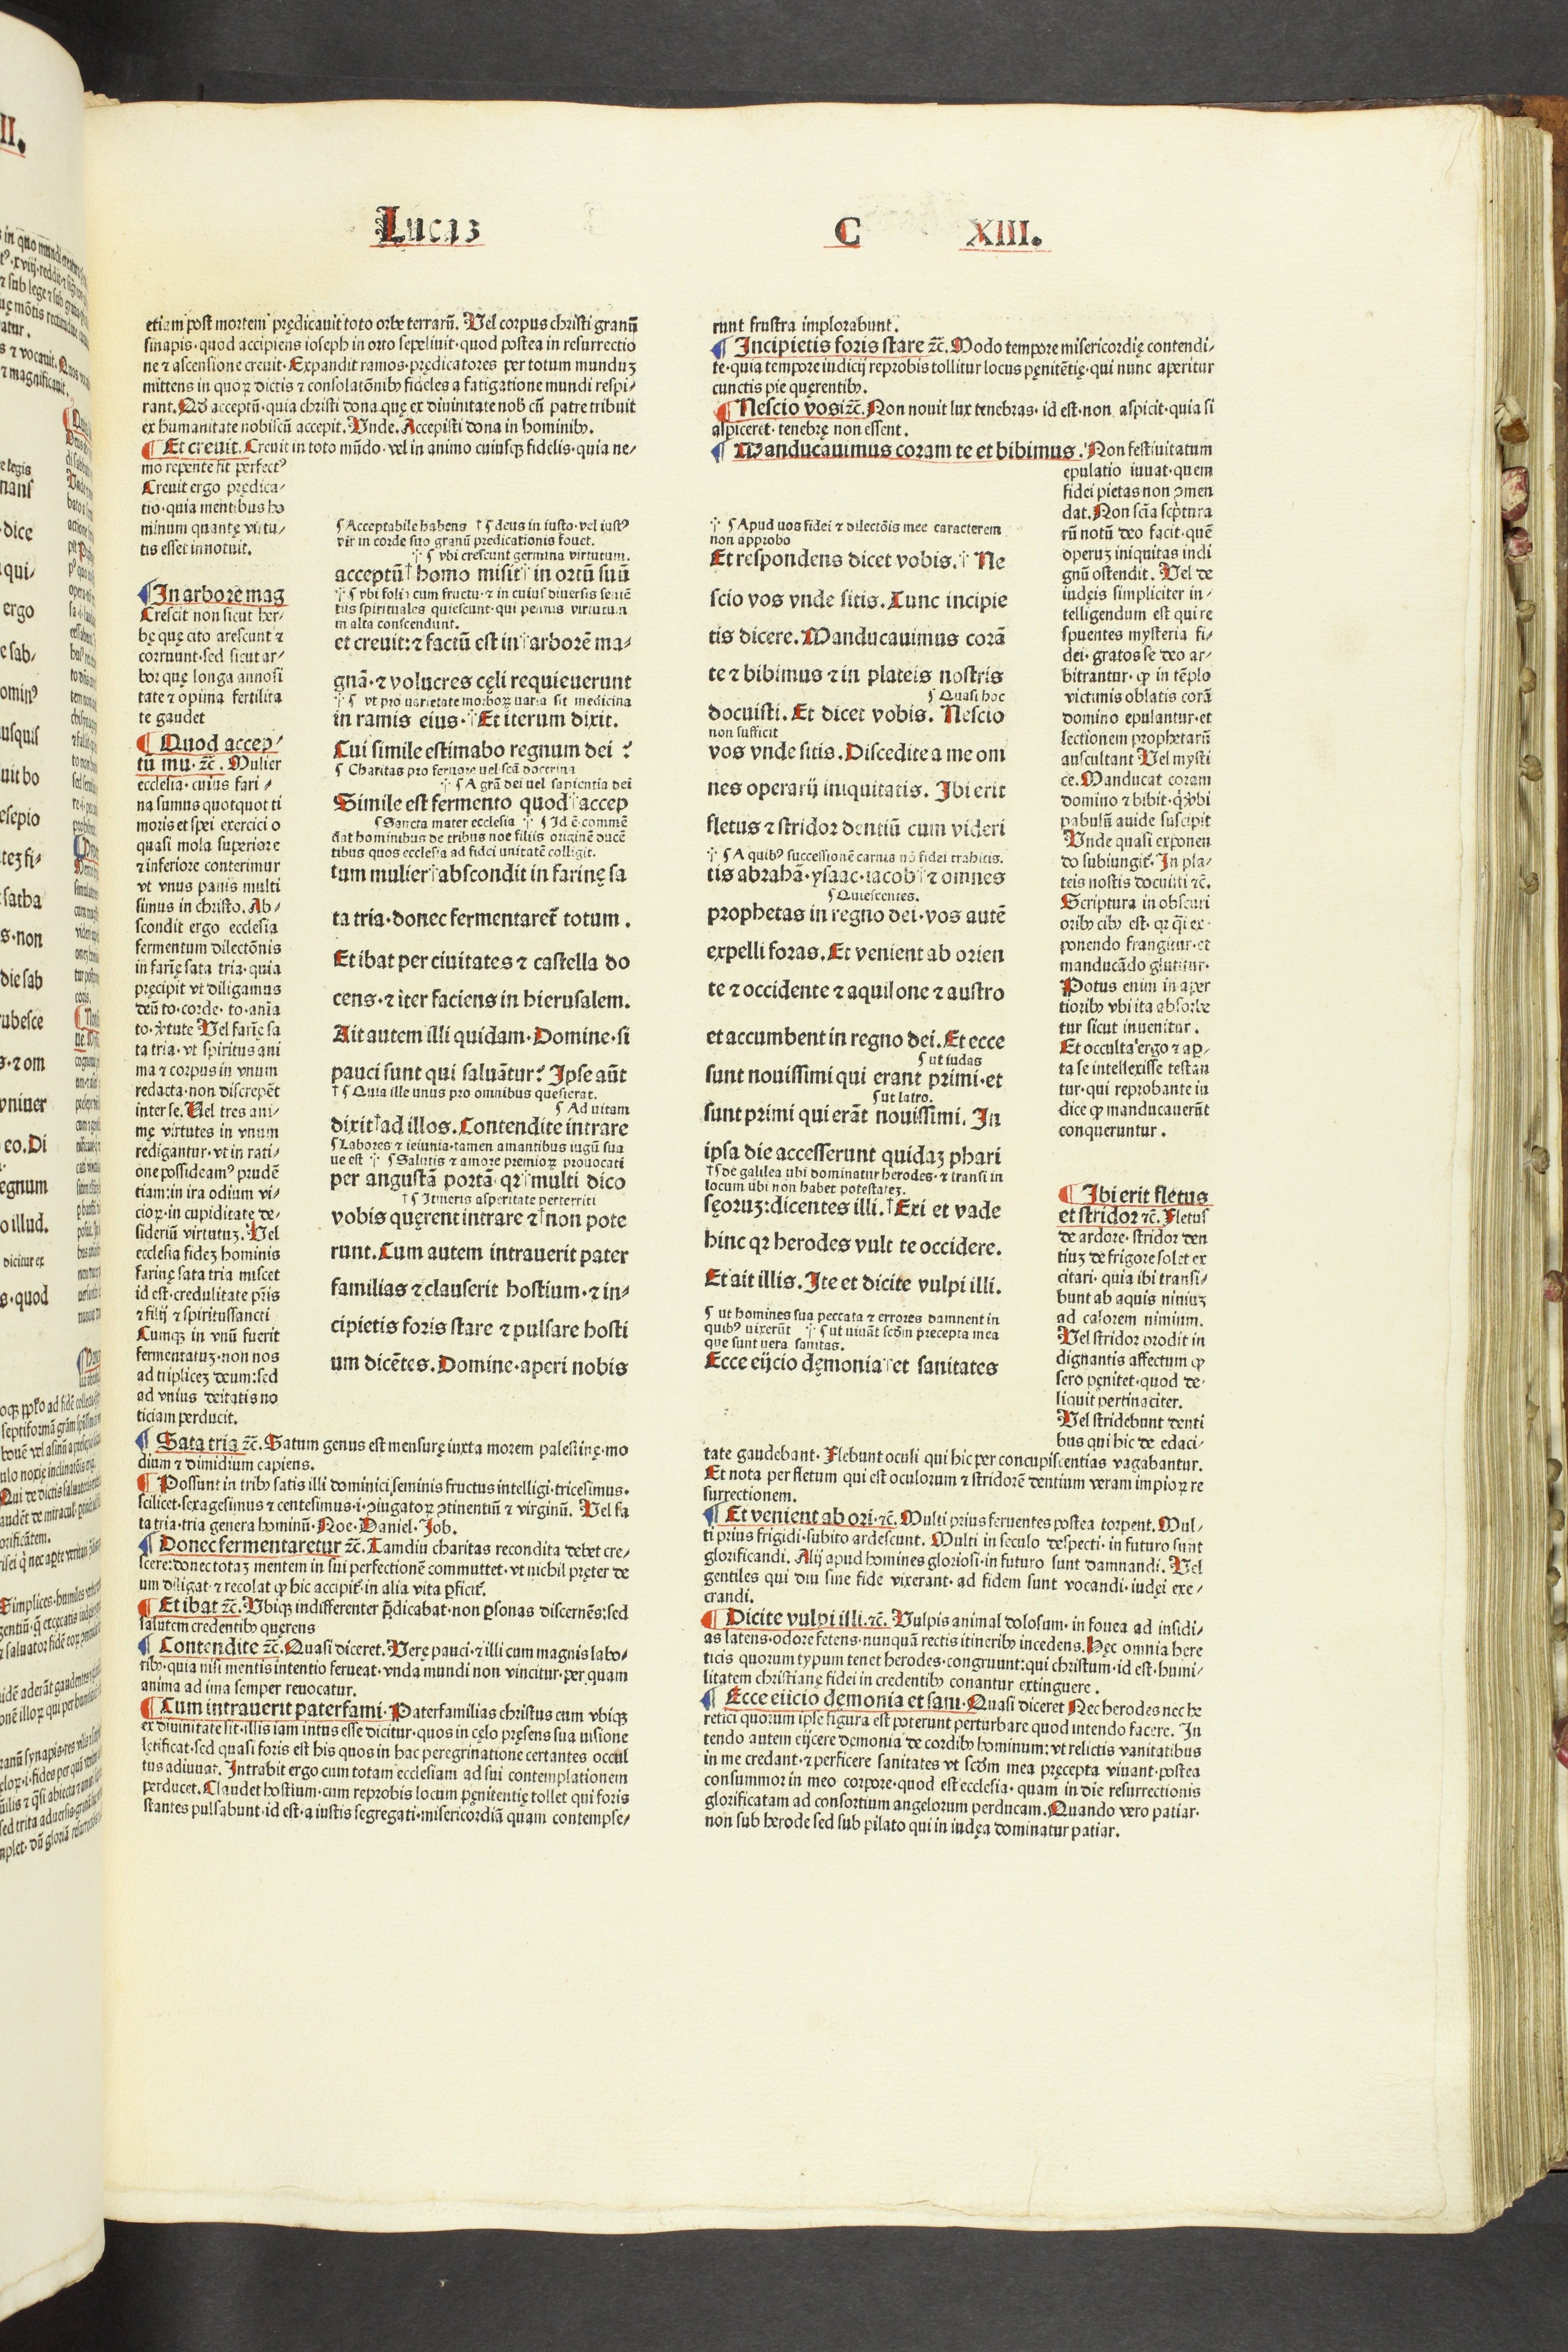 Lucas C XIII.
etiam post mortem prędicauit toto orbe terrarū. Vel corpus christi granū
sinapis· quod accipiens ioseph in orto sepeliuit· quod postea in resurrectio
ne ⁊ ascensione creuit· Expandit ramos· prędicatores per totum munduꝫ
mittens in quoꝝ dictis ⁊ consolatōnibꝰ fideles a fatigatione mundi respi/
rant. acceptū· quia christi dona quę ex diuinitate nob cū patre tribuit
ex humanitate nobiscū accepit. Vnde. Accepisti dona in hominibꝰ.
¶ Et creuit. Creuit in toto mūdo· vel in animo cuiusqꝫ fidelis· quia ne/
mo repente fit perfectꝰ
Creuit ergo prędica/
tio· quia mentibus ho
minum quantę virtu/
tis esset innotuit.
¶ In arbore mag
Crescit non sicut her/
bę quę cito arescunt ⁊
corruunt· sed sicut ar/
bor quę longa annosi
tate ⁊ opima fertilita
te gaudet
¶ Quod accep/
tū mu· ⁊c̄. Mulier
ecclesia· cuius fari/
na sumus quotquot ti
moris et spei exercicio
quasi mola superiore
⁊ inferiore conterimur
vt vnus panis multi
simus in christo. Ab/
scondit ergo ecclesia
fermentum dilectōnis
in farię sata tria· quia
pręcipit vt diligamus
deū to· corde· to· aīa
to· v̄tute Vel farię sa
ta tria· vt spiritus ani
ma ⁊ corpus in vnum
redacta· non discrepēt
inter se. Vel tres ani/
mę virtutes in vnum
redigantur· vt in rati/
one possideamꝰ prudē
tiam: in ira odium vi/
cioꝝ· in cupiditate de/
siderium virtutuꝫ. Vel
ecclesia fideꝫ hominis
farinę sata tria miscet
id est· credulitate pr̄is
⁊ filij ⁊ spiritussancti
Cumqꝫ in vnū fuerit
fermentatuꝫ· non nos
ad tripliceꝫ deum: sed
ad vnius deitatis no
ticiam perducit.
¶ Acceptabile habens † ¶ deus in iusto· vel iustꝰ
vir in corde suo granū predicationis fouet.
⁘ ¶ vbi crescunt germina virtutum.
acceptū† homo misit⁘ in ortū suū
⁘ ¶ vbi folia cum fructu· ⁊ in cuius diuersis sentē
tiis spirituales quiescunt· qui pennis virtutum
in alta conscendunt.
et creuit: ⁊ factū est in⁘ arborē ma/
gnā· ⁊ volucres cęli requieuerunt
⁘ ¶ vt pro uarietate morboꝝ uaria sit medicina
in ramis eius·⁘ Et iterum dixit.
Cui simile estimabo regnum dei ?
¶ Charitas pro feruore uel scā doctrina
⁘ ¶ A grā dei uel sapientia dei
Simile est fermento quod⁘ accep
¶ Sancta mater ecclesia ⁘ ¶ Id ē· commē
dat hominibus de tribus noe filiis originē ducē
tibus quos ecclesia ad fidei unitatē colligit.
tum mulier⁘ abscondit in farinę sa
ta tria· donec fermentaret̄ totum.
Et ibat per ciuitates ⁊ castella do
cens· ⁊ iter faciens in hierusalem.
Ait autem illi quidam· Domine· si
pauci sunt qui saluātur? Ipse aūt
† ¶ Quia ille unus pro omnibus quesierat.
¶ Ad uitam
dixit† ad illos. Contendite intrare
¶ Labores ⁊ ieiunia· tamen amantibus iugū sua
ue est ⁘ ¶ Salutis ⁊ amore premioꝝ prouocati
per angustā portā· qꝛ⁘ multi dico
† ¶ Itineris asperitate perterriti
vobis quęrent intrare ⁊† non pote
runt. Cum autem intrauerit pater
familias ⁊ clauserit hostium· ⁊ in/
cipietis foris stare ⁊ pulsare hosti
um dicētes. Domine· aperi nobis
¶ Sata tria ⁊c̄. Satum genus est mensurę iuxta morem palestinę· mo
dium ⁊ dimidium capiens.
¶ Possunt in tribꝰ satis illi dominici seminis fructus intelligi· tricesimus·
scilicet· sexagesimus ⁊ centesimus· i· ꝯiugatoꝝ ꝯtinentiū ⁊ virginū. Vel fa
ta tria· tria genera hominū· Noe· Daniel· Job.
¶ Donec fermentaretur ⁊c̄. Tamdiu charitas recondita debet cre/
scere: donec totaꝫ mentem in sui perfectionē commuttet· vt nichil pręter de
um diligat· ⁊ recolat ꝙ hic accipit̄· in alia vita ꝑficit̄.
¶ Et ibat ⁊c̄. Vbiqꝫ indifferenter p̄dicabat· non ꝑsonas discernēs: sed
salutem credentibꝰ quęrens
¶ Contendite ⁊c̄. Quasi diceret. Vere pauci· ⁊ illi cum magnis labo/
ribꝰ· quia nisi mentis intentio ferueat· vnda mundi non vincitur· per quam
anima ad ima semper reuocatur.
¶ Cum intrauerit paterfami· Paterfamilias christus cum vbiqꝫ
ex diuinitate sit· illis iam intus esse dicitur· quos in cęlo pręsens sua uisione
lętificat· sed quasi foris est his quos in hac peregrinatione certantes occul
tus adiuuat. Intrabit ergo cum totam ecclesiam ad sui contemplationem
perducet. Claudet hostium· cum reprobis locum pęnitentię tollet qui foris
stantes pulsabunt· id est· a iustis segregati· misericordiā quam contempse/
runt frustra implorabunt.
¶ Incipietis foris stare ⁊c̄. Modo tempore misericordię contendi/
te· quia tempore iudicij reprobis tollitur locus pęnitētię· qui nunc aperitur
cunctis pie quęrentibꝰ.
¶ Nescio vos ⁊c̄. Non nouit lux tenebras· id est· non aspicit· quia si
aspiceret· tenebrę non essent.
¶ Manducauimus coram te et bibimus. Non festiuitatum
epulatio iuuat· quem
fidei pietas non ꝯmen
dat. Non scīa scptura
rū notū deo facit· quē
operuꝫ iniquitas indi
gnū ostendit. Vel de
iudęis simpliciter in/
telligendum est qui re
spuentes mysteria fi/
dei· gratos se deo ar/
bitrantur· ꝙ in tēplo
victimis oblatis corā
domino epulantur· et
lectionem prophetarū
auscultant Vel mysti
ce. Manducat coram
domino ⁊ bibit· q̇ vbi
pabulū auide suscipit
Vnde quasi exponen
do subiungit. In pla/
teis nostis docuisti ⁊c̄.
Scriptura in obscuri
oribꝰ cibꝰ est· qꝛ q̄i ex·
ponendo frangitur· et
manducādo glutitur·
Potus enim in aper
tioribꝰ vbi ita absorbe
tur sicut inuenitur.
Et occulta ergo ⁊ aꝑ/
ta se intellexisse testan
tur· qui reprobante iu
dice ꝙ manducauerūt
conqueruntur.
⁘ ¶ Apud uos fidei ⁊ dilectōis mee caracterem
non approbo
Et respondens dicet vobis.⁘ Ne
scio vos vnde sitis. Tunc incipie
tis dicere. Manducauimus corā
te ⁊ bibimus ⁊ in plateis nostris
¶ Quasi hoc
docuisti. Et dicet vobis. Nescio
non sufficit
vos vnde sitis. Discedite a me om
nes operarij iniquitatis. Ibi erit
fletus ⁊ stridor dentiū cum videri
⁘ ¶ A quibꝰ successionē carnis nō fidei trahitis.
tis abrahā· ysaac· iacob⁘ ⁊ omnes
¶ Quiescentes.
prophetas in regno dei· vos autē
expelli foras. Et venient ab orien
te ⁊ occidente ⁊ aquilone ⁊ austro
et accumbent in regno dei. Et ecce
¶ ut iudas
sunt nouissimi qui erant primi· et
¶ ut latro.
sunt primi qui erāt nouissimi. In
ipsa die accesserunt quidaꝫ phari
† ¶ de galilea ubi dominatur herodes· ⁊ transi in
locum ubi non habet potestateꝫ.
sęoruꝫ: dicentes illi. † Exi et vade
hinc qꝛ herodes vult te occidere.
Et ait illis. Ite et dicite vulpi illi.
¶ ut homines sua peccata ⁊ errores damnent in
quibꝰ uixerūt ⁘ ¶ ut uiuāt scd̄m precepta mea
que sunt uera sanitas.
Ecce eijcio dęmonia⁘ et sanitates
¶ Ibi erit fletus
et stridor ⁊c̄. Fletus
de ardore· stridor den
tiuꝫ de frigore solet ex
citari· quia ibi transi/
bunt ab aquis niniuꝫ
ad calorem nimium.
Vel stridor prodit in
dignantis affectum ꝙ
sero pęnitet· quod de·
liquit pertinaciter.
Vel stridebunt denti
bus qui hic de edaci/
tate gaudebant· Flebunt oculi qui hic per concupiscentias vagabantur.
Et nota per fletum qui est oculorum ⁊ stridorē dentium veram impioꝝ re
surrectionem.
¶ Et venient ab ori· ⁊c̄. Multi prius feruentes postea torpent. Mul/
ti prius frigidi· subito ardescunt. Multi in seculo despecti· in futuro sunt
glorificandi. Alij apud homines gloriosi· in futuro sunt damnandi. Vel
gentiles qui diu sine fide vixerant· ad fidem sunt vocandi· iudęi exe/
crandi.
¶ Dicite vulpi illi. ⁊c̄. Vulpis animal dolosum· in fouea ad insidi/
as latens· odore fetens· nunquā rectis itineribꝰ incedens. Hęc omnia here
ticis quorum typum tenet herodes· congruunt: qui christum· id est· humi/
litatem christianę fidei in credentibꝰ conantur extinguere.
¶ Ecce eiicio dęmonia et sani· Quasi diceret Nec herodes nec he
retici quorum ipse figura est poterunt perturbare quod intendo facere. In
tendo autem eijcere dęmonia de cordibꝰ hominum: vt relictis vanitatibus
in me credant· ⁊ perficere sanitates vt scd̄m mea pręcepta viuant· postea
consummor in meo corpore· quod est ecclesia· quam in die resurrectionis
glorificatam ad consortium angelorum perducam. Quando vero patiar·
non sub herode sed sub pilato qui in iudęa dominatur patiar.